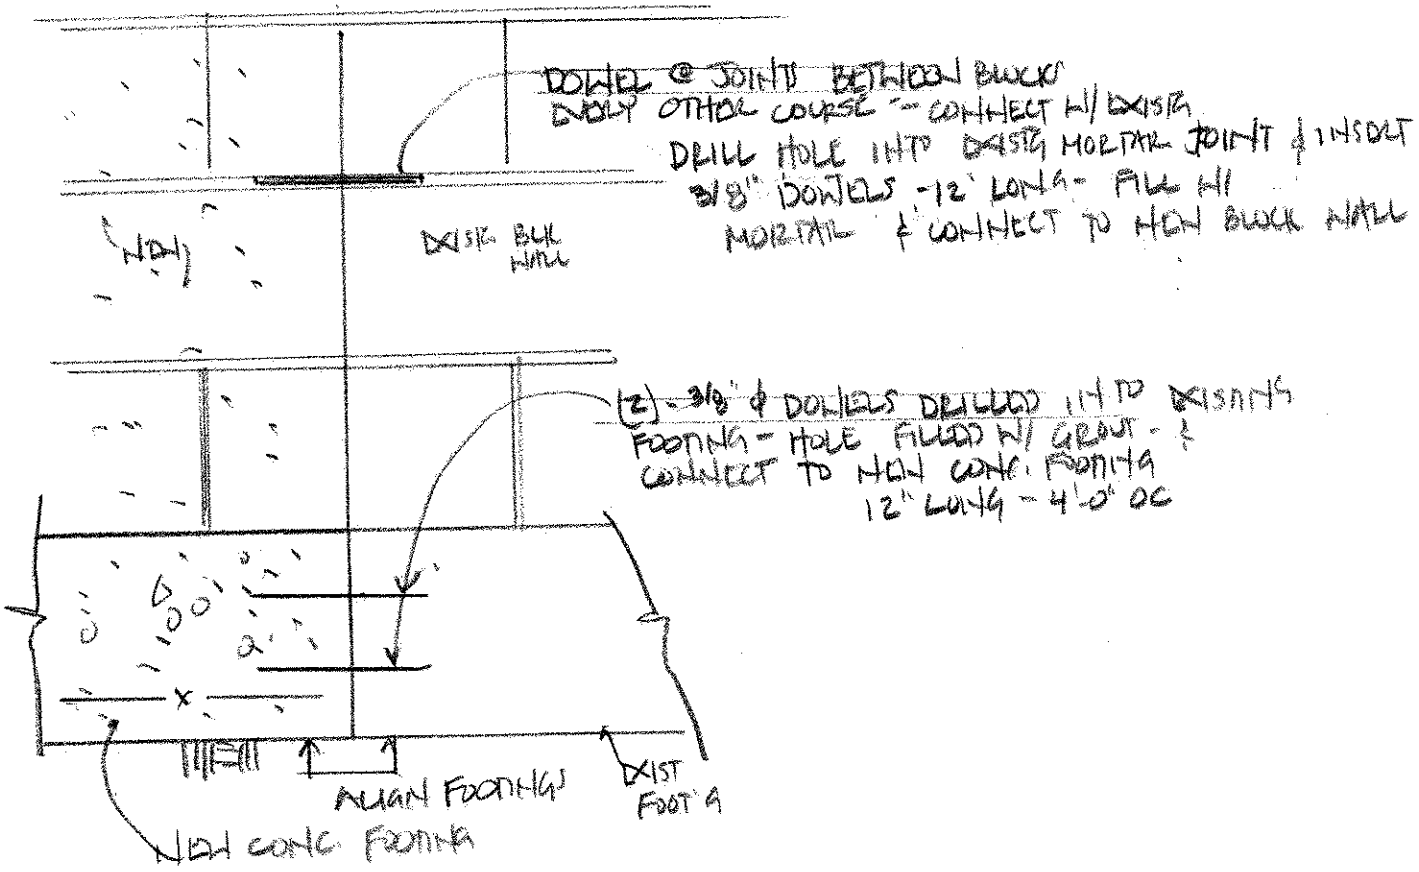 DOWEL @ JOINTS BETWEEN BLOCKS
EVERY OTHER COURSE - CONNECT W/ EXIST'G
DRILL HOLE INTO EXIST'G MORTAR JOINT & INSERT
3/8" DOWELS - 12" LONG - FILL W/
MORTAR & CONNECT TO NEW BLOCK WALL
NEW
EXIST'G BLK
WALL
(2) - 3/8" ϕ DOWELS DRILLED INTO EXISTING
FOOTING - HOLE FILLED W/ GROUT - &
CONNECT TO NEW CONC. FOOTING
12" LONG - 4'-0" OC
X
ALIGN FOOTINGS
EXIST
FOOT'G
NEW CONC. FOOTING